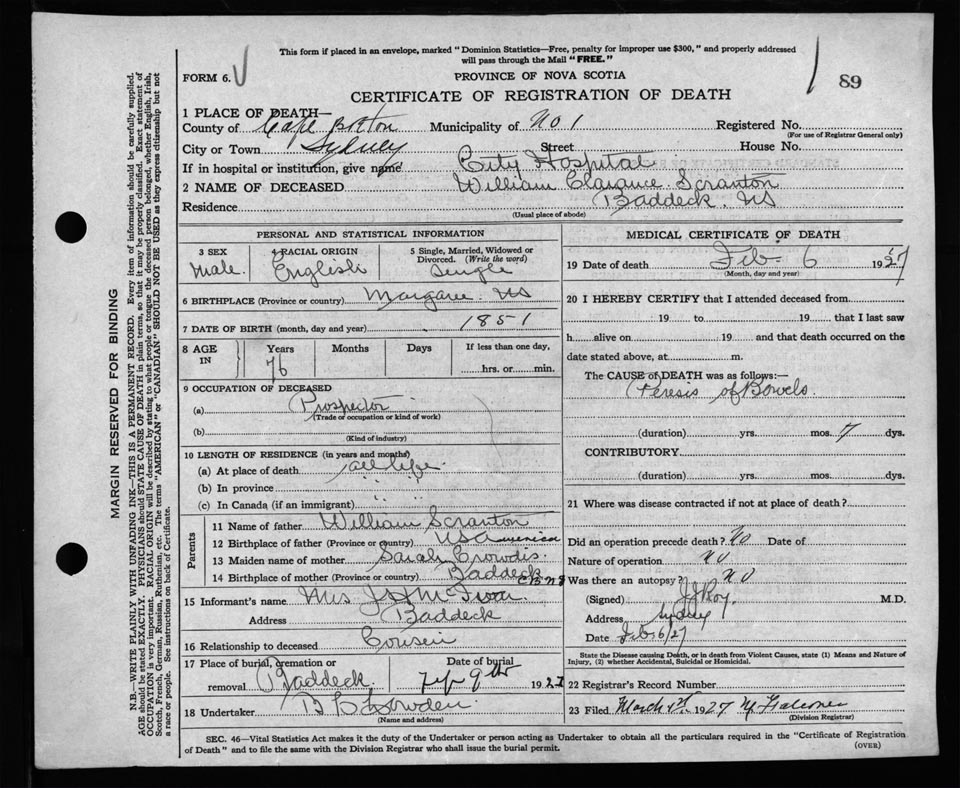 This form if placed in an envelope, marked "Dominion Statistics—Free, penalty for improper use $300," and properly addressed
will pass through the Mail "FREE."
FORM 6.
PROVINCE OF NOVA SCOTIA
89
CERTIFICATE OF REGISTRATION OF DEATH
1 PLACE OF DEATH—
County of Cape Breton Municipality of No 1 Registered No.
(For use of Registrar General only)
City or Town Sydney Street House No.
If in hospital or institution, give name City Hospital
2 NAME OF DECEASED William Clarance Scranton
Residence Baddeck. NS
(Usual place of abode)
PERSONAL AND STATISTICAL INFORMATION
3 SEX 4 RACIAL ORIGIN 5 Single, Married, Widowed or
Divorced. (Write the word)
Male. English Single
6 BIRTHPLACE (Province or country) Margaree NS
7 DATE OF BIRTH (month, day and year) 1851
8 AGE IN Years Months Days If less than one day,
76 hrs. or min.
9 OCCUPATION OF DECEASED
(a) Prospector
(Trade or occupation or kind of work)
(b)
(Kind of industry)
10 LENGTH OF RESIDENCE (in years and months)
(a) At place of death all life
(b) In province " "
(c) In Canada (if an immigrant) " "
Parents
11 Name of father William Scranton
12 Birthplace of father (Province or country) USA America
13 Maiden name of mother Sarah Crowdis.
14 Birthplace of mother (Province or country) Baddeck
15 Informant's name Mrs J H
Address Baddeck
16 Relationship to deceased Cousin
17 Place of burial, cremation or Date of burial
removal Baddeck. 9th 1927
18 Undertaker
(Name and address)
MEDICAL CERTIFICATE OF DEATH
19 Date of death Feb 6 1927
(Month, day and year)
20 I HEREBY CERTIFY that I attended deceased from
19 to 19 that I last saw
h alive on 19 and that death occurred on the
date stated above, at m.
The CAUSE of DEATH was as follows:—
Peresis of Bowels.
(duration) yrs. mos. 7 dys.
CONTRIBUTORY
(duration) yrs. mos. dys.
21 Where was disease contracted if not at place of death?
Did an operation precede death? No Date of
Nature of operation NO
Was there an autopsy? NO
(Signed) J J Roy. M.D.
Address Sydney
Date Feb 6/27
State the Disease causing Death, or in death from Violent Causes, state (1) Means and Nature of
Injury, (2) whether Accidental, Suicidal or Homicidal.
22 Registrar's Record Number
23 Filed March 1927
(Division Registrar)
SEC. 46—Vital Statistics Act makes it the duty of the Undertaker or person acting as Undertaker to obtain all the particulars required in the "Certificate of Registration
of Death" and to file the same with the Division Registrar who shall issue the burial permit.
(OVER)
MARGIN RESERVED FOR BINDING
N.B.—WRITE PLAINLY WITH UNFADING INK—THIS IS A PERMANENT RECORD. Every item of information should be carefully supplied.
AGE should be stated EXACTLY. PHYSICIANS should STATE CAUSE OF DEATH in plain terms, so that it may be properly classified. Exact statement of
OCCUPATION is very important. RACIAL ORIGIN will be described by stating to what people or tongue the deceased person belonged, whether English, Irish,
Scotch, French, German, Russian, Ruthenian, etc. The terms "AMERICAN" or "CANADIAN" SHOULD NOT BE USED as they express citizenship but not
a race or people. See instructions on back of Certificate.